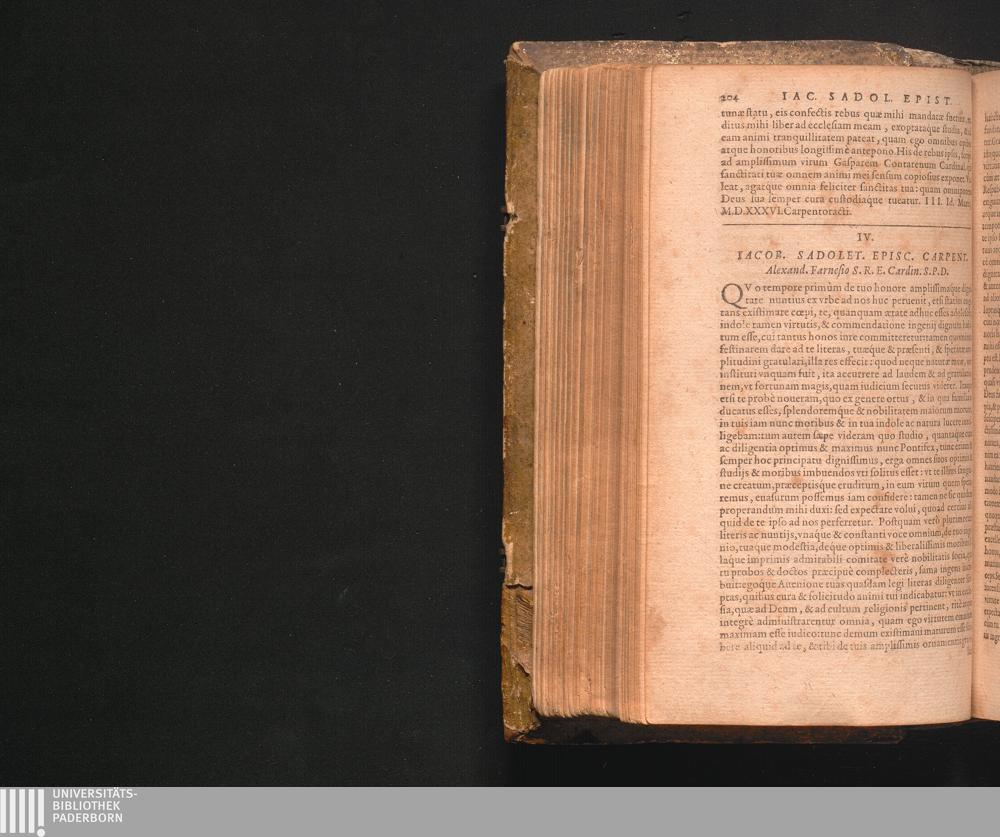 204 IAC. SADOL. EPIST.
tunæ statu, eis confectis rebus quæ mihi mandatæ fuerint,
ditus mihi liber ad ecclesiam meam, exoptataque studia,
eam animi tranquillitatem pateat, quam ego omnibus
atque honoribus longissimè antepono. His de rebus ipsis,
ad amplissimum virum Gasparem Contarenum Cardinal.
sanctitati tuæ omnem animi mei sensum copiosius exponet. Va
leat, agatque omnia feliciter sanctitas tua: quam omnipotens
Deus sua semper cura custodiaque tueatur. III. Id. Mart.
M.D.XXXVI. Carpentoracti.
IV.
IACOB. SADOLET. EPISC. CARPENT.
Alexand. Farnesio S. R. E. Cardin. S.P.D.
QVo tempore primùm de tuo honore amplissimaque digni
tate nuntius ex vrbe ad nos huc peruenit, etsi statim
tans existimare cœpi, te, quanquam ætate adhuc esses
indole tamen virtutis, & commendatione ingenij dignum
tum esse, cui tantus honos iure committeretur: tamen
festinarem dare ad te literas, tuæque & præsenti, & speratæ am
plitudini gratulari, illa res effecit: quod neque naturæ meæ,
instituti vnquam fuit, ita accurrere ad laudem & ad gratulatio
nem, vt fortunam magis, quam iudicium secutus viderer. Itaque
etsi te probè noueram, quo ex genere ortus, & in qua familia
educatus esses, splendoremque & nobilitatem maiorum tuorum
in tuis iam nunc moribus & in tua indole ac natura lucere
ligebam: tum autem sæpe videram quo studio, quantaque
ac diligentia optimus & maximus nunc Pontifex, tunc etiam &
semper hoc principatu dignissimus, erga omnes suos optimis
studijs & moribus imbuendos vti solitus esset: vt te illius sangui
ne creatum, præceptisque eruditum, in eum virum quem spera
remus, euasurum possemus iam confidere: tamen ne sic quidem
properandum mihi duxi: sed expectare volui, quoad certius
quid de te ipso ad nos perferretur. Postquam verò plurimorum
literis ac nuntijs, vnaque & constanti voce omnium, de tuo inge
nio, tuaque modestia, deque optimis & liberalissimis moribus,
laque imprimis admirabili comitate verè nobilitatis socia,
tu probos & doctos præcipuè complecteris, fama ingens
buit: egoque Auenione tuas quasdam legi literas diligenter scri
ptas, quibus cura & solicitudo animi tui indicabatur: vt in eccle
sia, quæ ad Deum, & ad cultum religionis pertinent, ritè
integrè administrarentur omnia, quam ego virtutem
maximam esse iudico: tunc demum existimani maturum esse
bere aliquid ad te, & tibi de tuis amplissimis ornamentis
UNIVERSITÄTS-
BIBLIOTHEK
PADERBORN